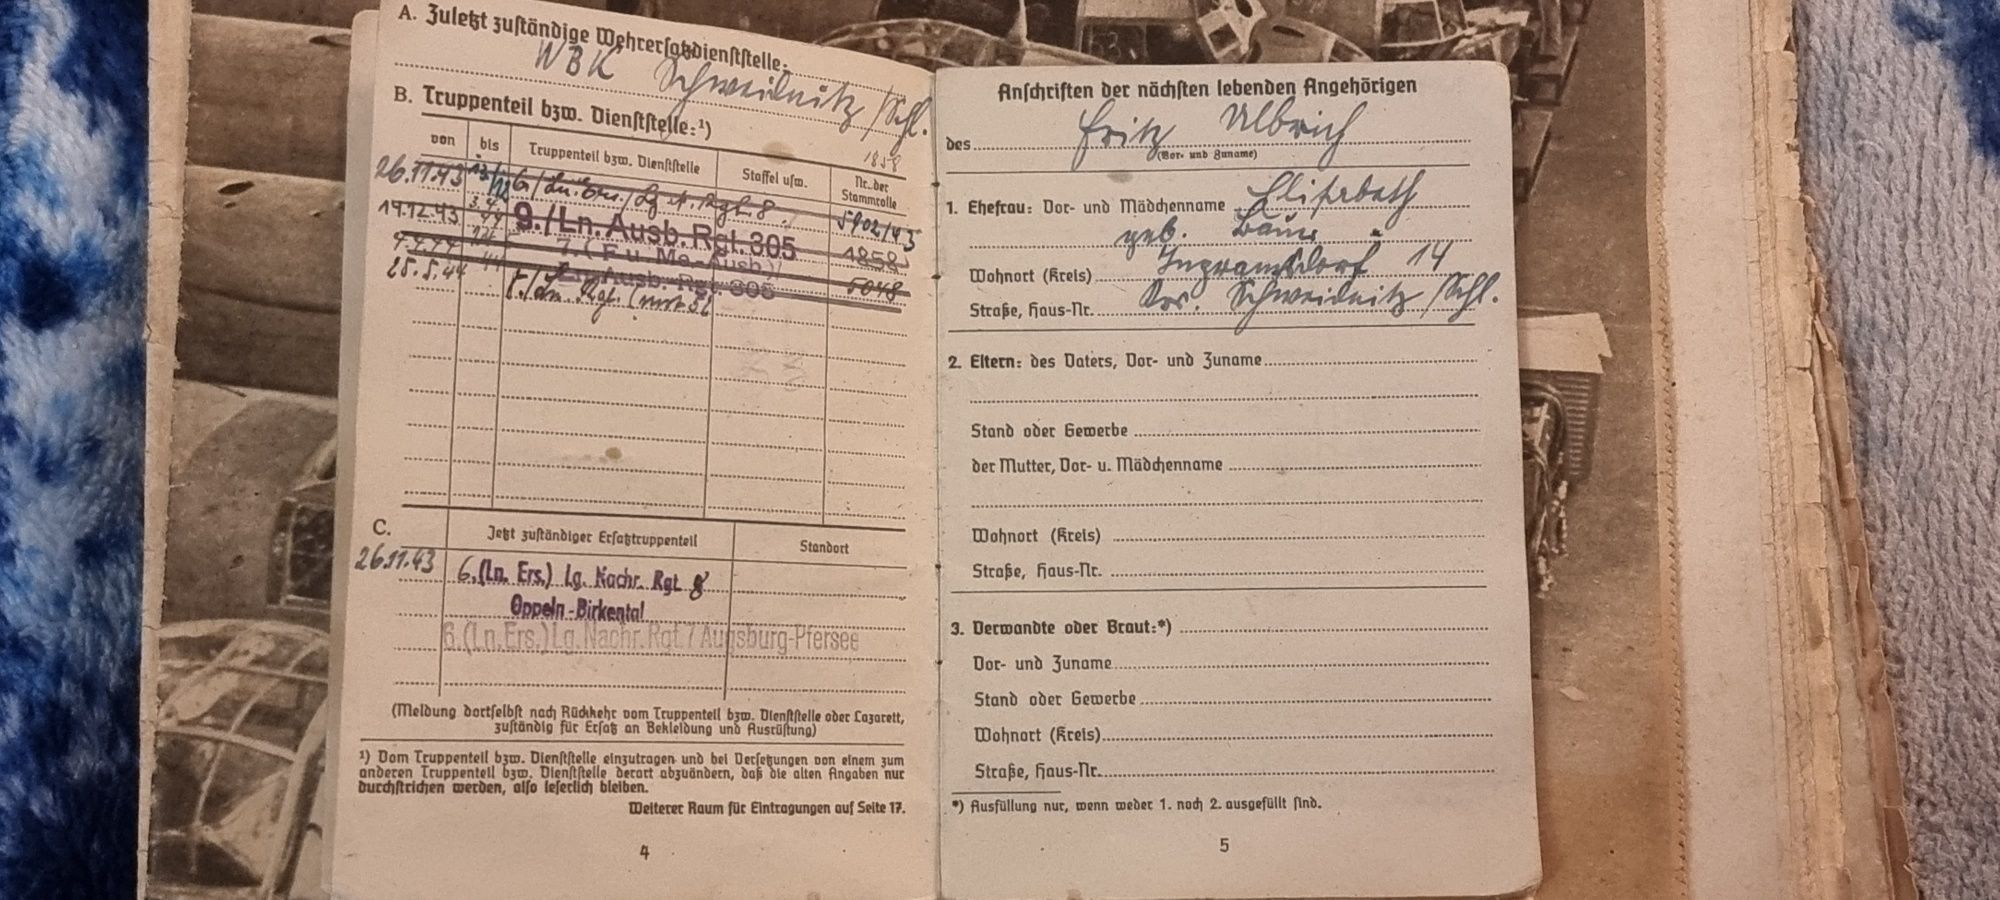 A. Zuletzt zuständige Wehrersatzdienststelle:
WBK Schweidnitz /Schl.
B. Truppenteil bzw. Dienststelle:¹)
von bis Truppenteil bzw. Dienststelle Staffel usw. Nr. der Stammrolle
1858
26.11.43 6/Ln. Ers./Lg.N.Rgt. 8 5902/43
14.12.43 9./Ln. Ausb. Rgt. 305 1858
7.(F u. Me-Ausb)/
Ln. Ausb. Rgt. 305 5048
25.5.44 /Ln. Rgt.
C. Jetzt zuständiger Ersatztruppenteil Standort
26.11.43 6.(Ln. Ers.) Lg. Nachr. Rgt. 8
Oppeln-Birkental
6.(Ln.Ers.)Lg.Nachr.Rgt.7 Augsburg-Pfersee
(Meldung dortselbst nach Rückkehr vom Truppenteil bzw. Dienststelle oder Lazarett,
zuständig für Ersatz an Bekleidung und Ausrüstung)
¹) Vom Truppenteil bzw. Dienststelle einzutragen und bei Versetzungen von einem zum
anderen Truppenteil bzw. Dienststelle derart abzuändern, daß die alten Angaben nur
durchstrichen werden, also leserlich bleiben.
Weiterer Raum für Eintragungen auf Seite 17.
4
Anschriften der nächsten lebenden Angehörigen
des Fritz Ulbrich
(Vor- und Zuname)
1. Ehefrau: Vor- und Mädchenname Elisabeth
geb.
Wohnort (Kreis) Ingramsdorf 14
Straße, Haus-Nr. Krs. Schweidnitz /Schl.
2. Eltern: des Vaters, Vor- und Zuname
Stand oder Gewerbe
der Mutter, Vor- u. Mädchenname
Wohnort (Kreis)
Straße, Haus-Nr.
3. Verwandte oder Braut:*)
Vor- und Zuname
Stand oder Gewerbe
Wohnort (Kreis)
Straße, Haus-Nr.
*) Ausfüllung nur, wenn weder 1. noch 2. ausgefüllt sind.
5